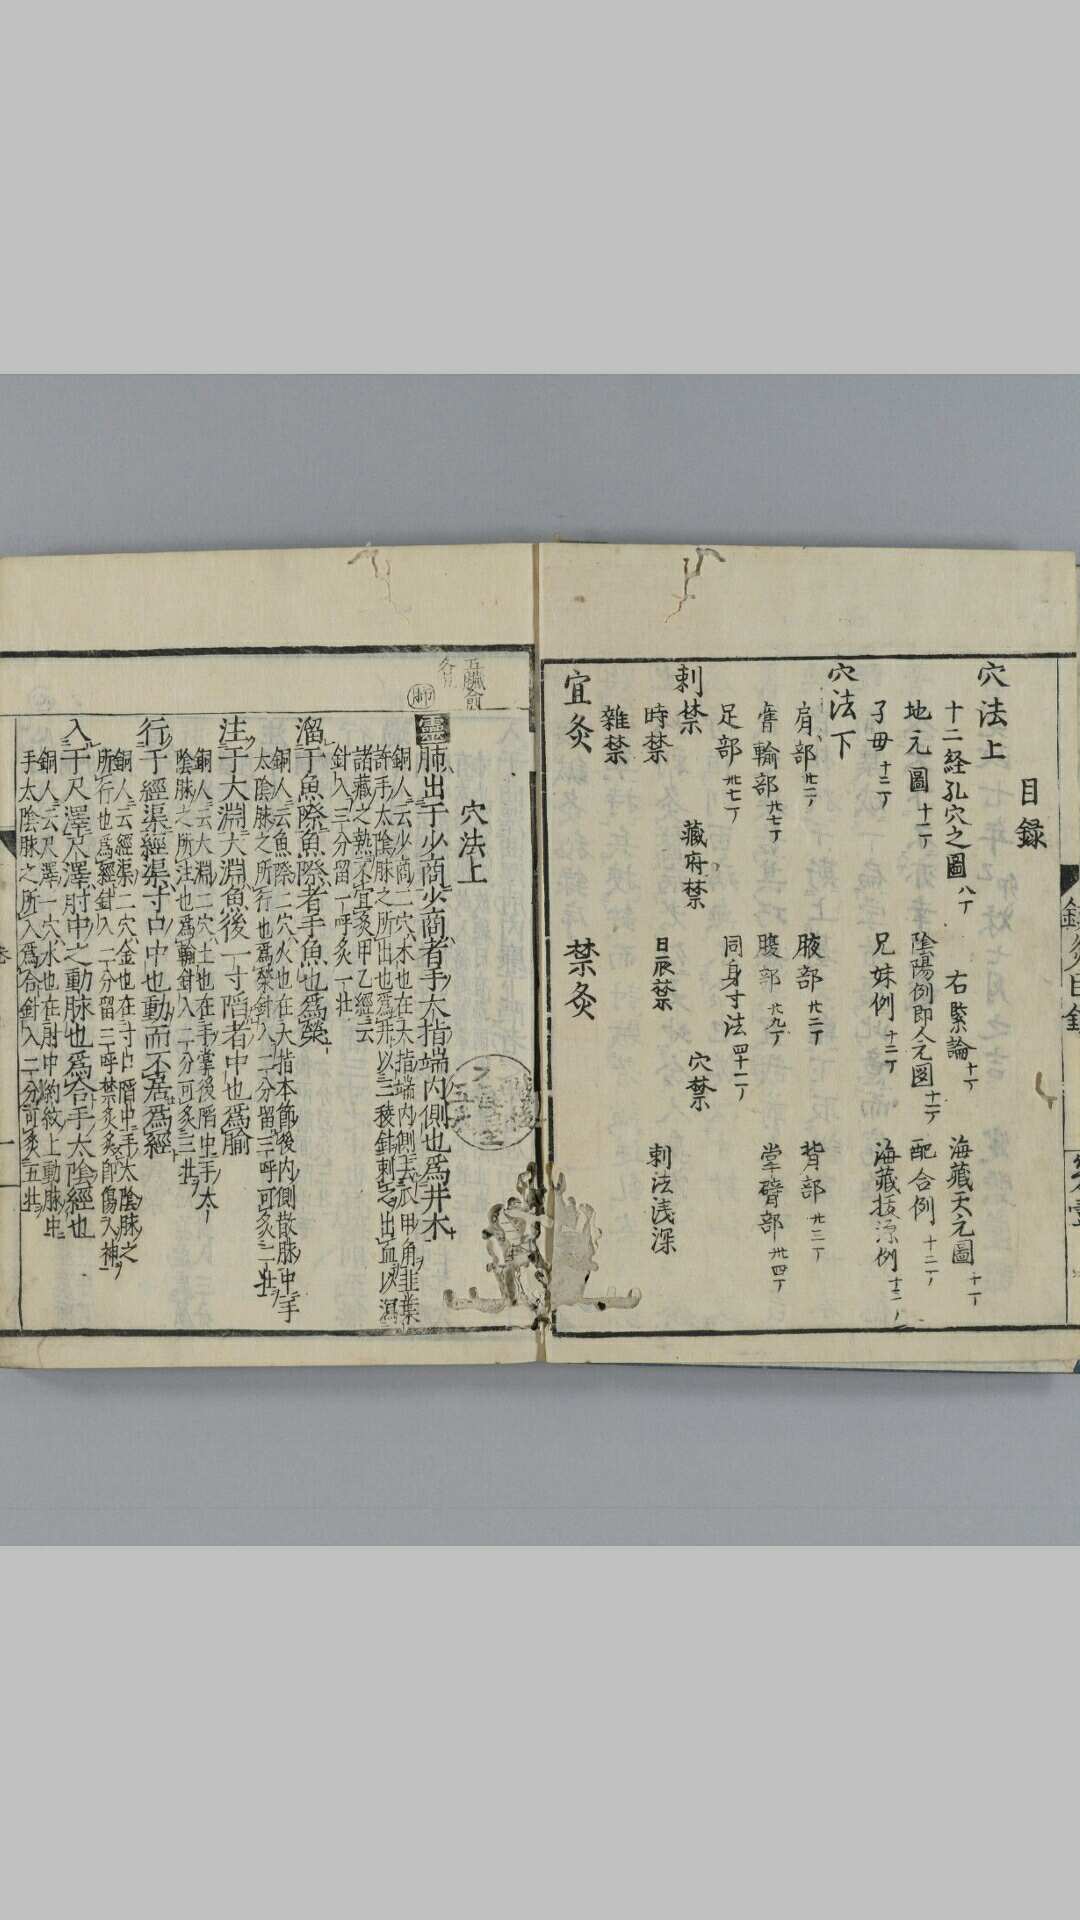 目録
穴法上
十二経孔穴之圖 八丁 右緊論 十丁 海藏天元圖 十一丁
地元圖 十一丁 陰陽例即人元図 十二丁 配合例 十二丁
子母 十二丁 兄妹例 十二丁 海藏抜源例 十二丁
穴法下
肩部 廿二丁 腋部 廿二丁 背部 廿三丁
膏輸部 廿七丁 腹部 廿九丁 掌臂部 卅四丁
足部 卅七丁 同身寸法 四十一丁
刺禁 藏府禁 穴禁
時禁 日辰禁 刺法浅深
雜禁
宜灸 禁灸
穴法上
靈 肺出于少商少商者手大指端内側也爲井木
銅人云少商二穴木也在大指端内側去爪甲角韭葉
許手太陰脉之所出也爲井以三稜針刺之出血以瀉
諸藏之熱不宜灸甲乙經云
針入三分留一呼灸一壯
溜于魚際魚際者手魚也爲滎
銅人云魚際二穴火也在大指本節後内側散脉中手
太陰脉之所行也爲滎針入二分留三呼可灸二壯
注于大淵大淵魚後一寸陷者中也爲腧
銅人云大淵二穴土也在手掌後陷中手太
陰脉之所注也爲輸針入二分可灸三壯
行于經渠經渠寸口中也動而不居爲經
銅人云經渠二穴金也在寸口陷中手太陰脉之
所行也爲經針入二分留三呼禁灸灸即傷人神
入于尺澤尺澤肘中之動脉也爲合手太陰經也
銅人云尺澤一穴水也在肘中約紋上動脉中
手太陰脉之所入爲合針入二分可灸五壯